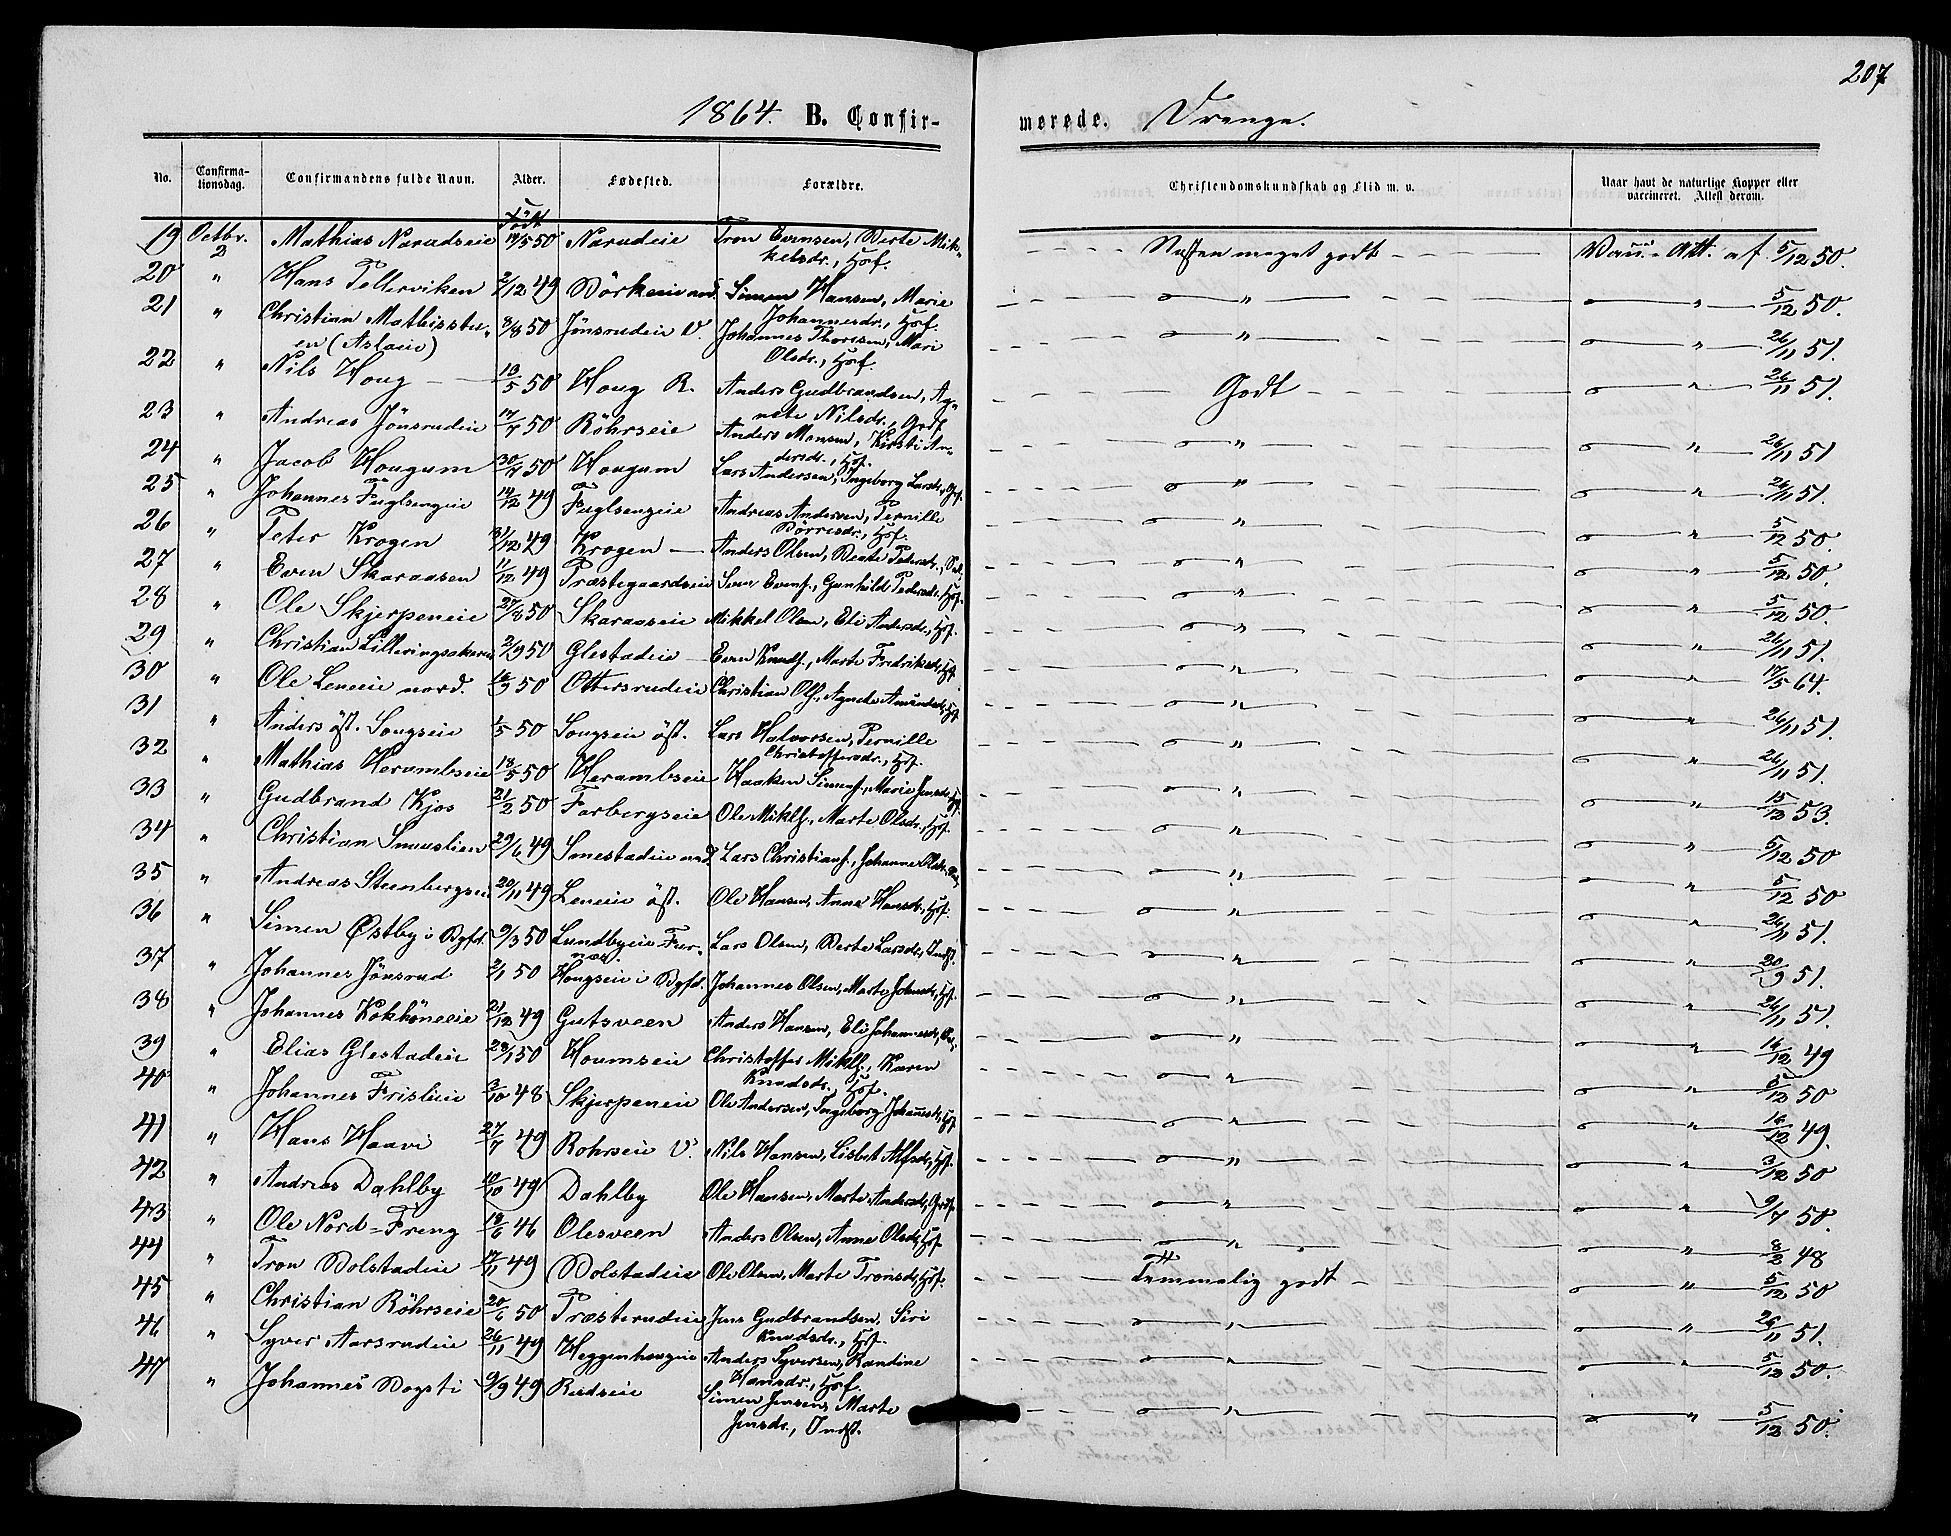 207
1864. B. Confir- merede. Drenge.
No. Confirma-tionsdag. Confirmandens fulde Navn. Alder. Fødested. Forældre. Christendomskundskab og Flid m. v. Naar havt de naturlige Kopper eller vaccineret. Attest derom.
Født
19 Octbr. 2 Mathias Narudseie 50 Narudeie Tron Evensen, Berte Mik-
kelsdr., Hof. Næsten meget godt Att. af 5/12 50.
20 " Hans Tellerviken 2/12 49 Simen Hansen, Marie
Johannesdr., Hof. " " 5/12 50.
21 " Christian Mathisstu-
en 8/8 50 Jönsrudeie V. Johannes Thoresen, Mari
Olsdr., Hof. " " 26/11 51.
22 " Nils Houg 13/5 50 Houg R. Anders Gudbrandsen, Ag-
nete Nilsdr., Godt " 26/11 51.
23 " Andreas Jönsrudeie 17/7 50 Röhrseie Anders Monsen, Kirsti An-
dersdr., Hof. " " 26/11 51
24 " Jacob Hougum 30/7 50 Hougum Lars Andersen, Ingeborg Larsdr., " " 26/11 51.
25 " Johannes Fuglsengeie 14/12 49 Fuglsengeie Andreas Andersen, Pernille
Börresdr., Hof. " " 5/12 50.
26 " Peter Krogen 31/12 49 Krogen Anders Olsen, Beate Pedersdr., " " 5/12 50.
27 " Even Skaraasen 11/12 49 Præstegaardseie Sven Evens., Gunhild Pedersdr., Hof. " " 5/12 50.
28 " Ole Skjerpeneie 27/8 50 Skaraaseie Mikkel Olsen, Eli Andersdr., Hof. " " 26/11 51.
29 " Christian 2/9 50 Glestadeie Even Knuds., Marte Fredriksdr., Hof. " " 17/5 64.
30 " Ole Leneeie nord. 16/9 50 Ottersrudeie Christian Ols., Agnete Amundsdr., Hof. " " 26/11 51.
31 " Anders öst. Sougseie 1/5 50 Sougseie öst. Lars Halvorsen, Pernille
Christoffersdr., Hof. " " 26/11 51.
32 " Mathias Herambseie 18/5 50 Herambseie Haaken Simens., Marie Jensdr., Hof. " " 15/12 53.
33 " Gudbrand Kjos 21/2 50 Farbergseie Ole Mikls., Marte Olsdr., Hof. " " 5/12 50
34 " Christian 29/6 49 Smestadeie nord Lars Christians., Johanne Olsdr., " " 5/12 50
35 " Andreas Steenbergseie 20/11 49 Leneeie öst. Ole Hansen, Anne Hansdr., Hof. " " 26/11 51.
36 " Simen Østby i Bgfd. 9/3 50 Lundbyeie Fur-
næs. Lars Olsen, Berte Larsdr., Indst. " " 20/9 51.
37 " Johannes Jönsrud 2/1 50 Hougseie i Bgfd. Johannes Olsen, Marte Johnsdr., Hof. " " 26/11 51.
38 " Johannes 21/12 49 Gutsveen Anders Hansen, Eli Johannesdr., " " 16/12 49
39 " Elias Glestadeie 28/1 50 Houmseie Christoffer Mikls., Karen
Knudsdr., Hof. " " 50
40 " Johannes Frislieie 3/10 48 Skjerpeneie Ole Andersen, Ingeborg Johannesdr., Hof. " " 16/12 49.
41 " Hans Haavi 27/7 49 Rohrseie V. Nils Hansen, Lisbet Alfsdr., Hof. " " 3/12 50
42 " Andreas Dahlby 10/10 49 Dahlby Ole Hansen, Marte Andersdr., " " 9/7 50.
43 " Ole Nord-Freng 18/6 46 Olesveen Anders Olsen, Anne Olsdr., Hof. " " 8/2 48
44 " Tron Bolstadeie 17/11 49 Bolstadeie Ole Olsen, Marte Tronsdr., Hof. Temmelig godt " 5/12 50
45 " Christian Röhrseie 20/6 50 Præsterudeie Jens Gudbrandsen, Siri
Knudsdr., Hof. " " 26/11 51.
46 " Syver Aarsrudeie 26/11 49 Heggenhougeie Anders Syversen, Randine
Hansdr., Hof. " " 5/12 50.
47 " Johannes Bogsti 9/9 49 Rudseie Simen Jensen, Marte
Jensdr., Indst. " " 5/12 50.